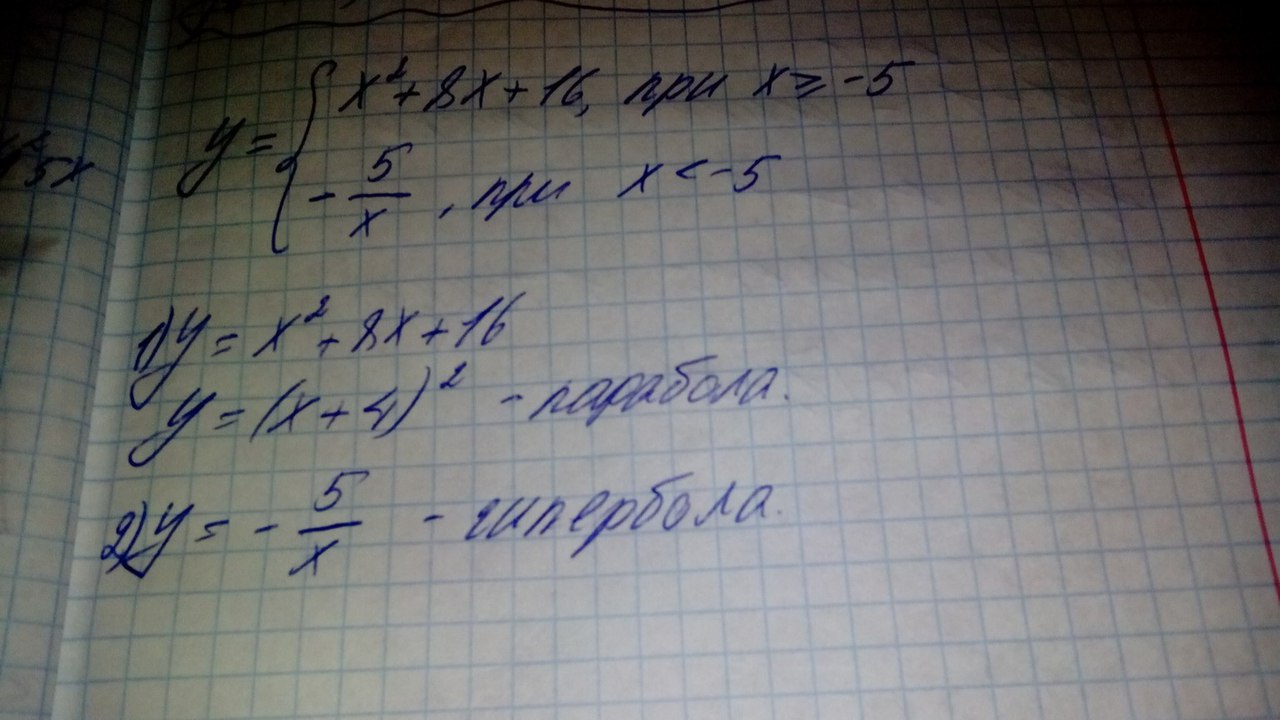 y = { x² + 8x + 16, при x ≥ -5
- 5/x , при x < -5
5x
1) y = x² + 8x + 16
y = (x + 4)² - парабола.
2) y = - 5/x - гипербола.